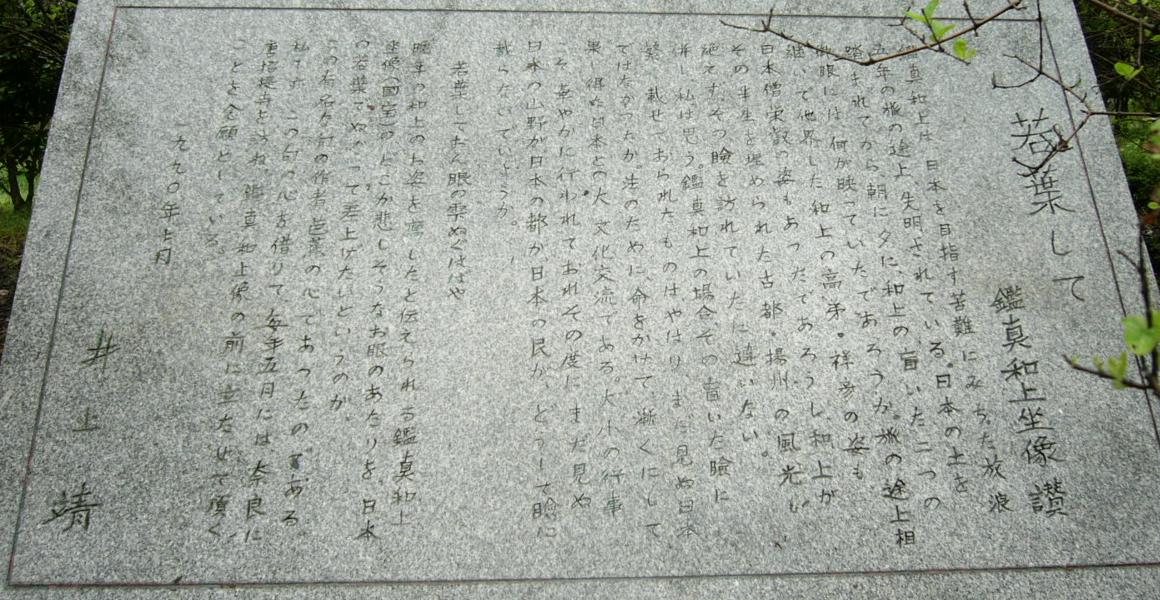 若葉して
鑑真和上坐像 讃
鑑真和上は、日本を目指す苦難にみちた放浪
五年の旅の途上、失明されている。日本の土を
踏まれてから朝に夕に、和上の、盲いた二つの
御眼には何が映っていたであろうか。旅の途上相
継いで他界した和上の高弟。祥彦の姿も
日本僧栄叡の姿もあったであろうし、和上が
その半生を埋められた古都・揚州の風光も
絶えずその瞼を訪れていたに違いない。
併し、私は思う。鑑真和上の場合、その盲いた瞼に
繁く載せておられたものはやはり、まだ見ぬ日本
ではなかったか。法のために命をかけて、漸くにして
果し得た日本との大文化交流である。大小の行事
こそ華やかに行われており、その度に、まだ見ぬ
日本の山野が、日本の都が、日本の民が、どうして瞼に
載らないでいようか。
若葉しておん眼の雫ぬぐはばや
晩年の和上のお姿を写したと伝えられる鑑真和上
坐像(国宝)のどこか悲しそうなお眼のあたりを、日本
の若葉でぬぐって差上げたいというのが
この有名な句の作者、芭蕉の心であったのである。
私もこの句の心を借りて、毎年五月には奈良に
唐招提寺を訪ね、鑑真和上像の前に立たせて頂く
ことを念願としている。
一九九〇年七月
井上靖